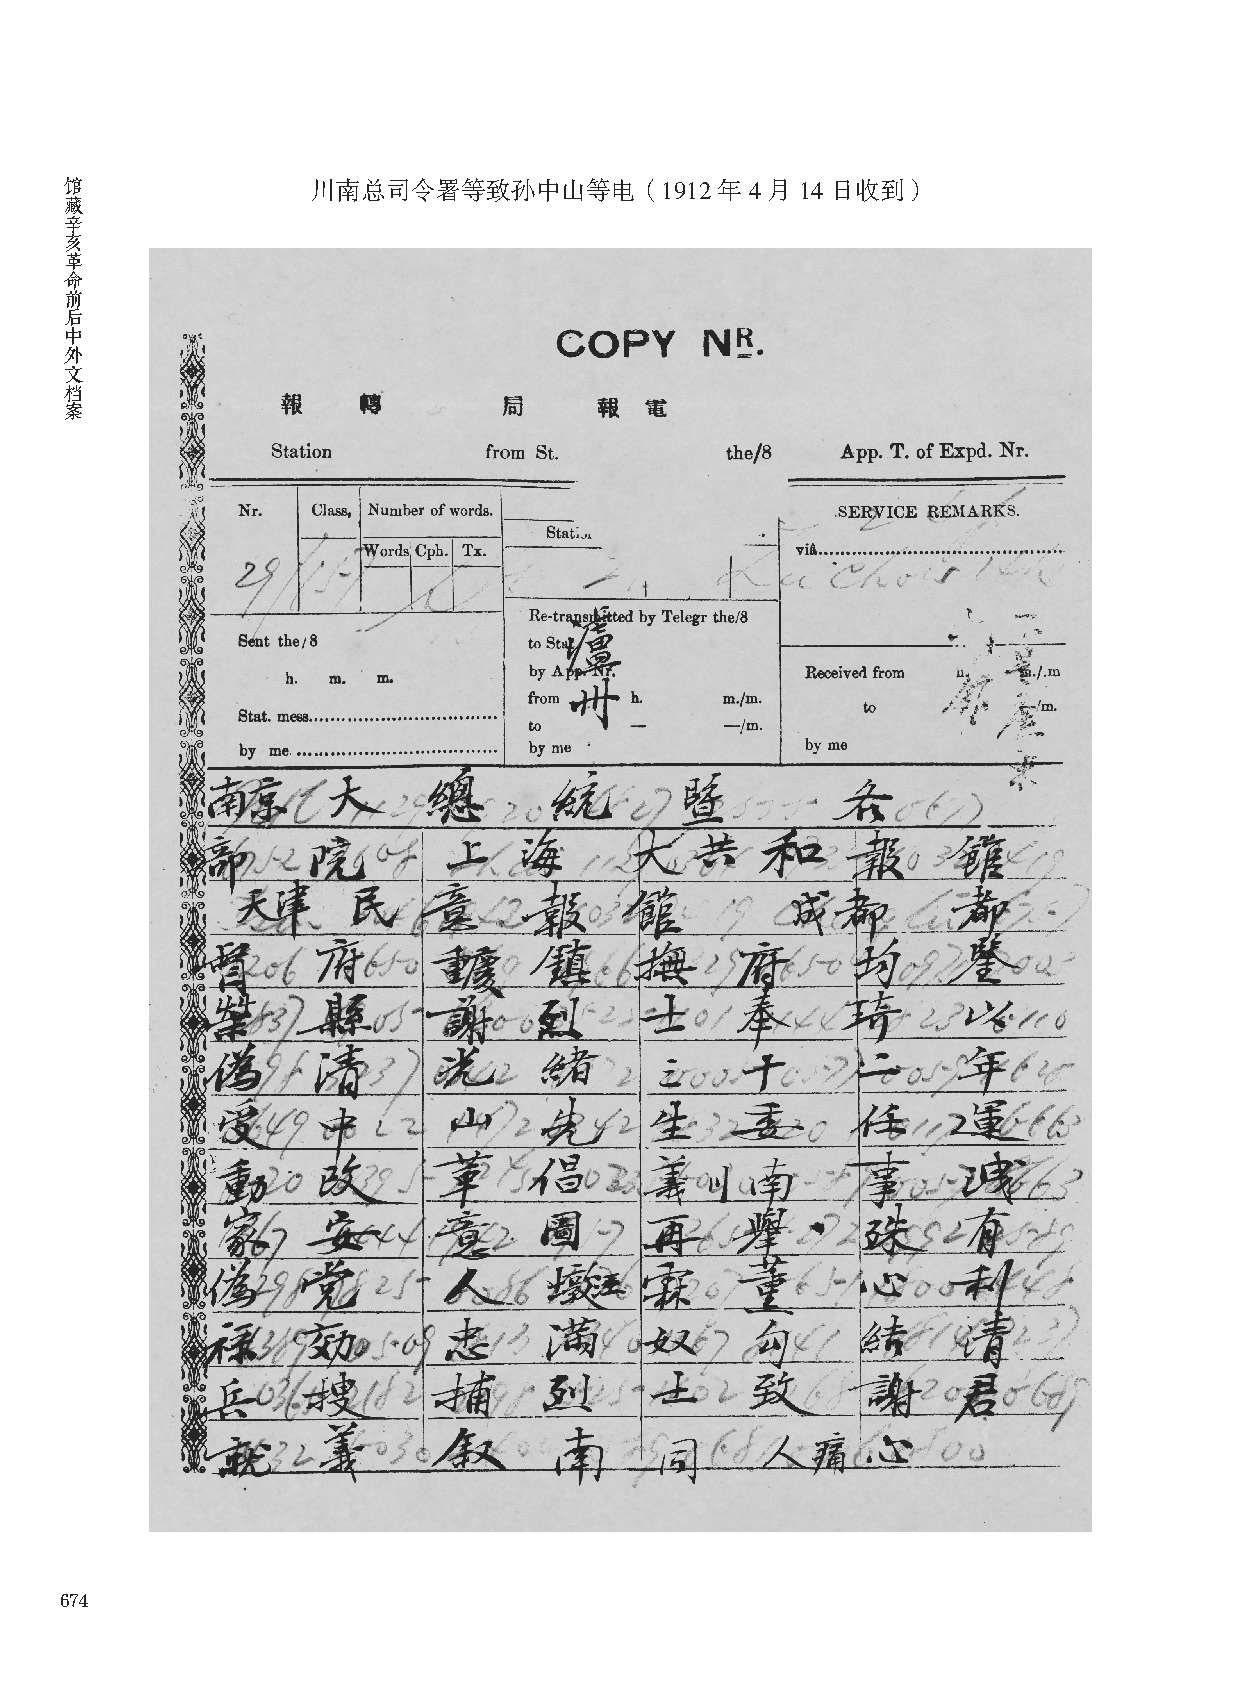 馆藏辛亥革命前后中外文档案
川南总司令署等致孙中山等电（1912年4月14日收到）
COPY NR.
報 轉 局 報 電
Station from St. the/8 App. T. of Expd. Nr.
Nr. Class, Number of words.
Words Cph. Tx.
29
SERVICE REMARKS.
via
Re-transmitted by Telegr the/8
Sent the/8
瀘
h. m. m.
by App. Nr.
Received from
from h. m./m.
州
to —/m.
Stat. mess.
to — —/m.
by me
by me
by me
南京大總統暨各
部院上海大共和報館
天津民意報館成都都
督府重慶鎮撫府均鑒
榮縣謝烈士奉琦以
偽清光緒三十二年
受中山先生委任運
動改革倡義川南事洩
家安意圖再舉殊有
偽党人墩江霖董心利
祿効忠滿奴勾結清
兵搜捕烈士致謝君
就義叙南同人痛心
674